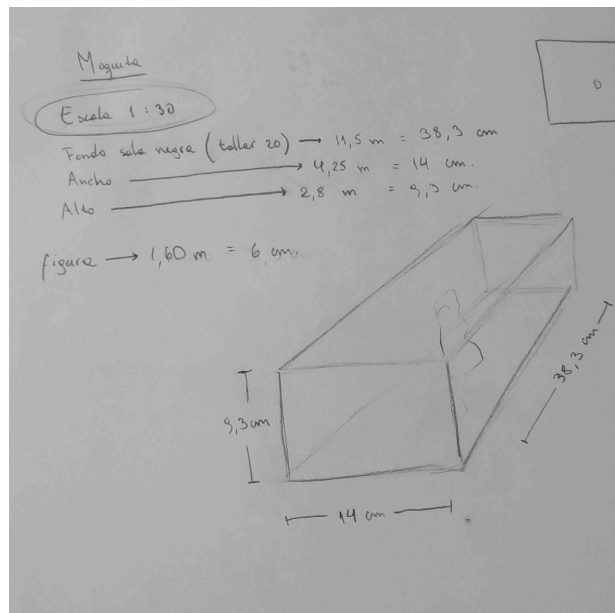 Maqueta
Escala 1:30
Fondo sala negra (taller 20) → 11,5 m = 38,3 cm
Ancho → 4,25 m = 14 cm.
Alto → 2,8 m = 9,3 cm.
figura → 1,60 m = 6 cm.
9,3 cm
38,3 cm
14 cm